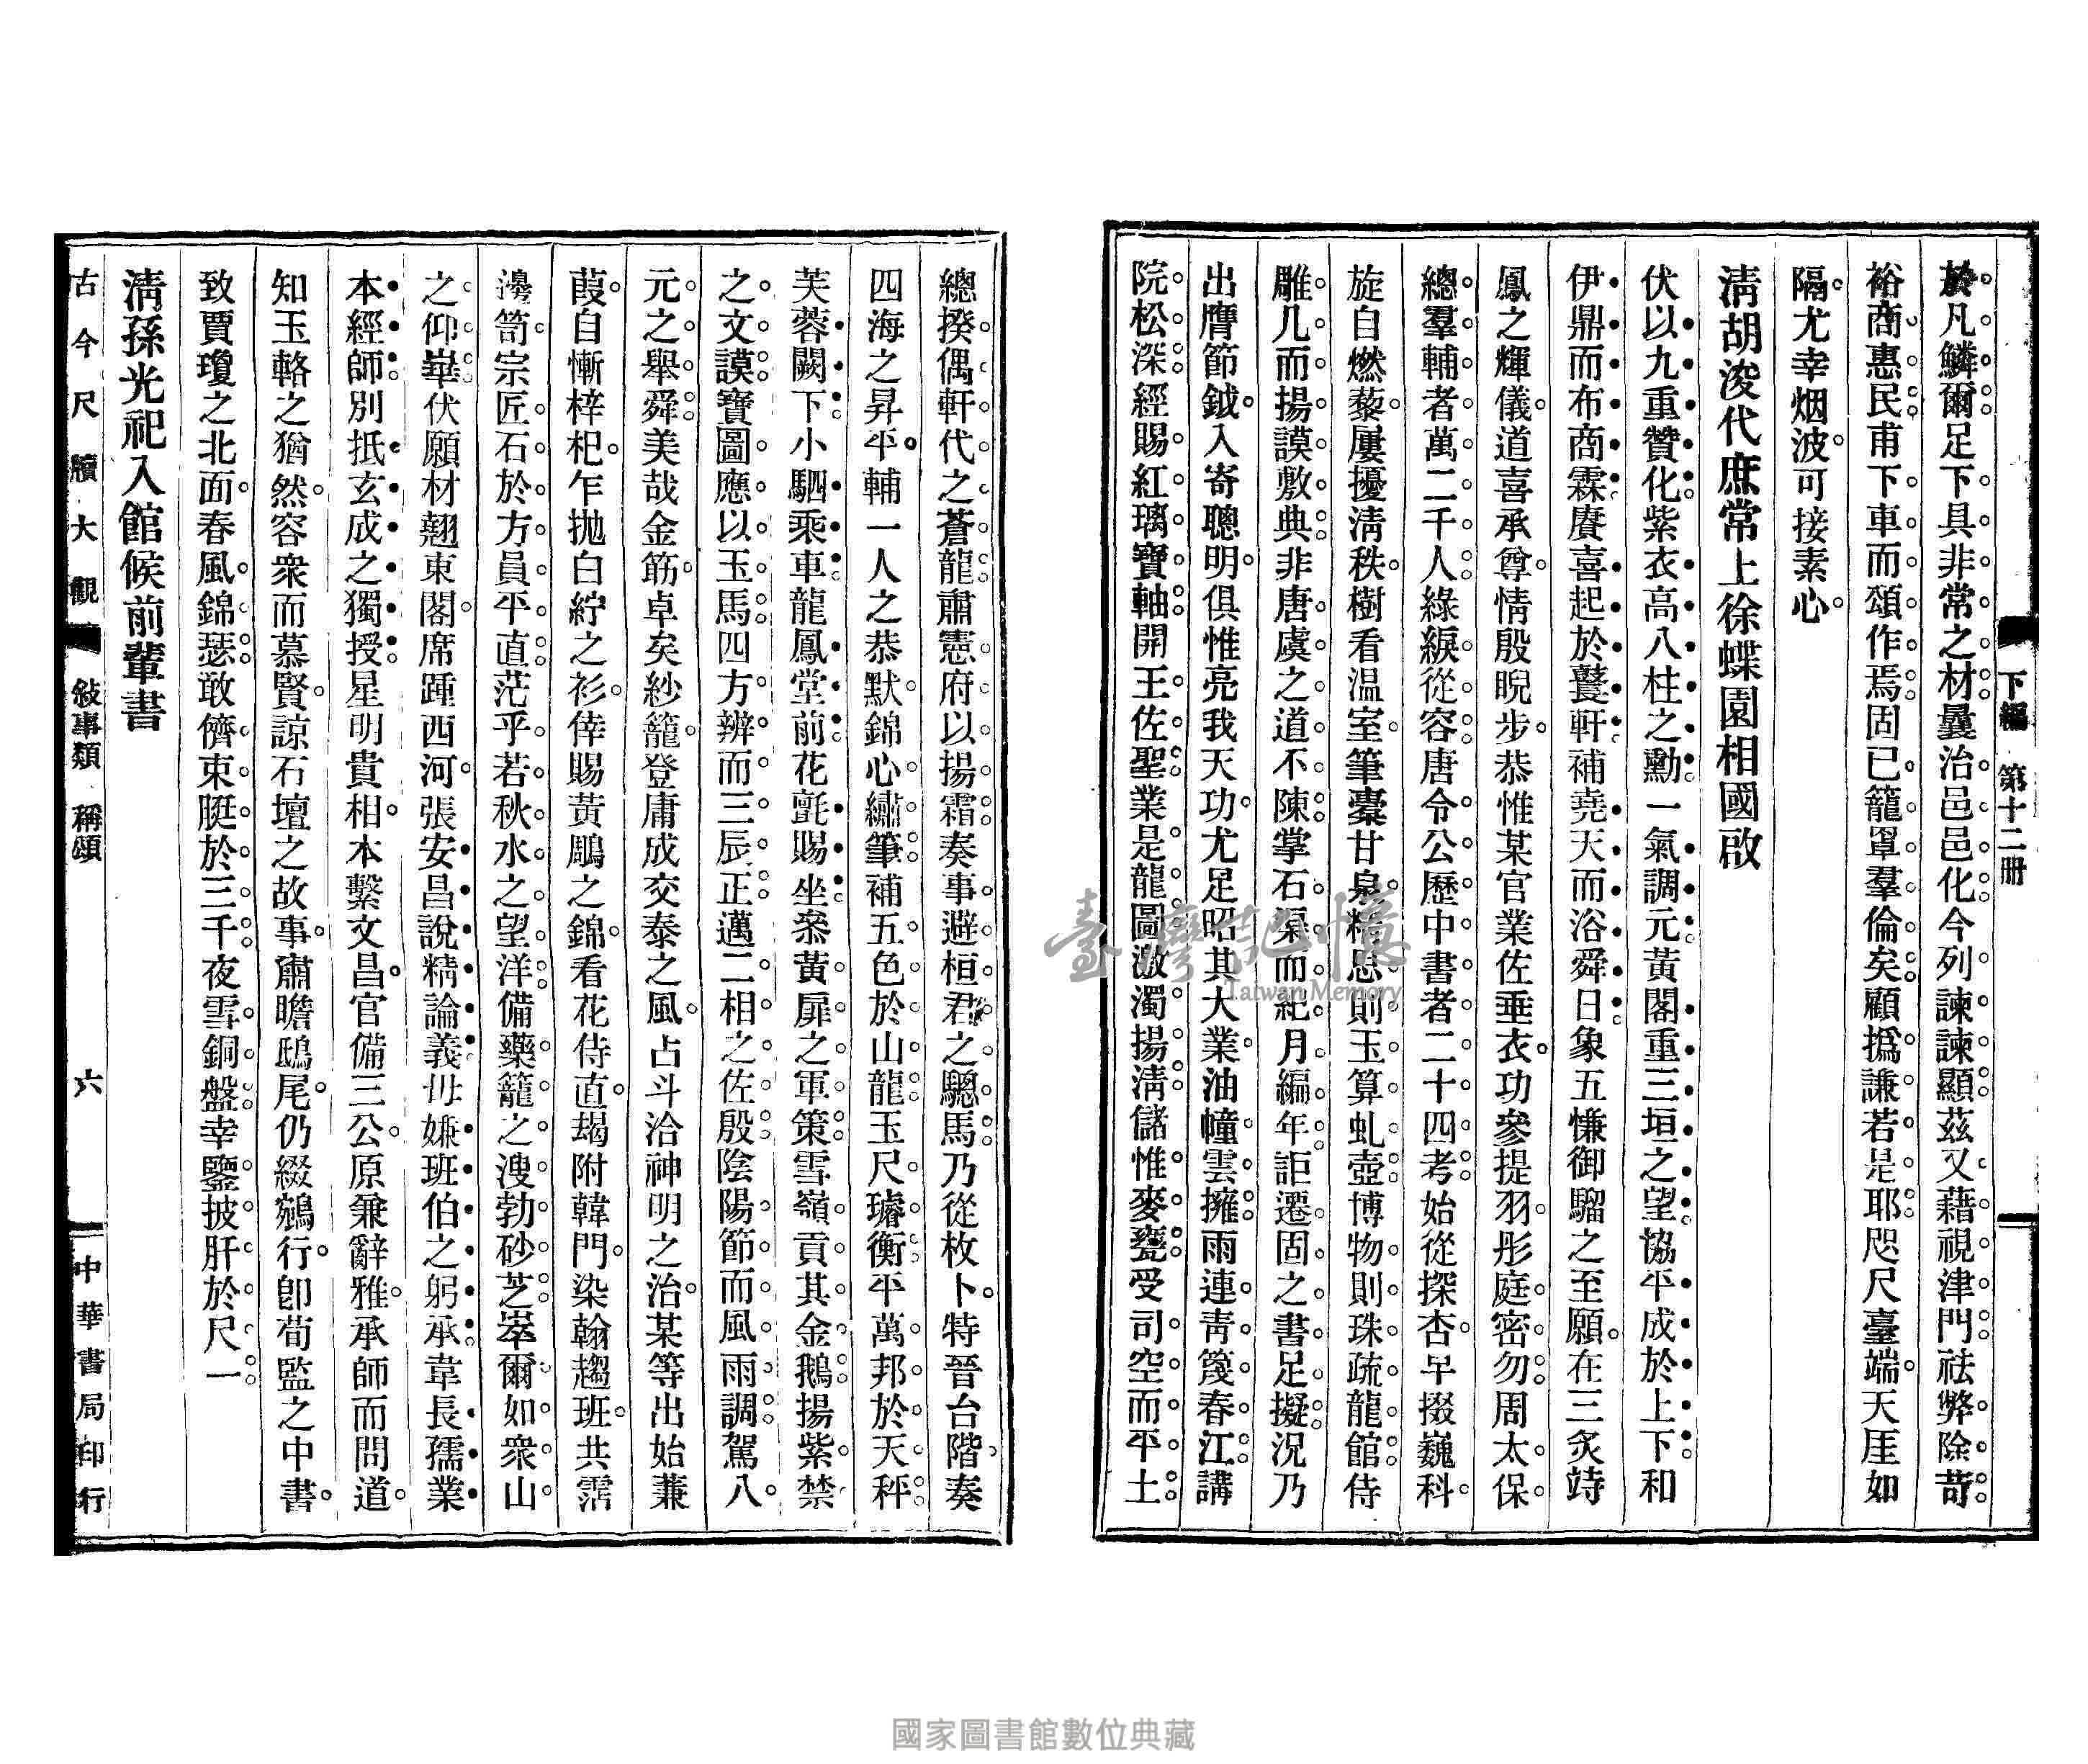 下編　第十二册
於凡鱗爾足下具非常之材曩治邑邑化今列諫諫顯茲又藉視津門祛弊除苛
裕商惠民甫下車而頌作焉固已籠罩羣倫矣顧撝謙若是耶咫尺臺端天厓如
隔尤幸烟波可接素心
淸胡浚代庶常上徐蝶園相國啟
伏以九重贊化紫衣高八柱之勳一氣調元黃閣重三垣之望協平成於上下和
伊鼎而布商霖賡喜起於虁軒補堯天而浴舜日象五慊御騮之至願在三炙跱
鳳之輝儀道喜承尊情殷睨步恭惟某官業佐垂衣功參提羽彤庭密勿周太保
總羣輔者萬二千人綠綟從容唐令公歷中書者二十四考始從探杏早掇巍科
旋自燃藜屢擾淸秩樹看溫室筆橐甘泉精思則玉算虬壺博物則珠疏龍館侍
雕几而揚謨敷典非唐虞之道不陳掌石渠而紀月編年詎遷固之書足擬況乃
出膺節鉞入寄聰明俱惟亮我天功尤足昭其大業油幢雲擁雨連靑篾春江講
院松深經賜紅璃寶軸開王佐聖業是龍圖激濁揚淸儲惟麥甕受司空而平土
總揆偶軒代之蒼龍肅憲府以揚霜奏事避桓君之驄馬乃從枚卜特晉台階奏
四海之昇平輔一人之恭默錦心繡筆補五色於山龍玉尺璿衡平萬邦於天秤
芙蓉闕下小駟乘車龍鳳堂前花氈賜坐叅黃扉之軍策雪嶺貢其金鵝揚紫禁
之文謨寶圖應以玉馬四方辨而三辰正邁二相之佐殷陰陽節而風雨調駕八
元之舉舜美哉金筋卓矣紗籠登庸成交泰之風占斗洽神明之治某等出始蒹
葭自慚梓杞乍抛白紵之衫倖賜黃鵰之錦看花侍直蝎附韓門染翰趨班共霑
邊笥宗匠石於方員平直茫乎若秋水之望洋備藥籠之溲勃砂芝萃爾如衆山
之仰崋伏願材翹東閣席踵西河張安昌說精論義毋嫌班伯之躬承韋長孺業
本經師別抵玄成之獨授星明貴相本繫文昌官備三公原兼辭雅承師而問道
知玉輅之猶然容衆而慕賢諒石壇之故事肅瞻鴟尾仍綴鵷行卽荀監之中書
致賈瓊之北面春風錦瑟敢儕束脡於三千夜雪銅盤幸鑒披肝於尺一
淸孫光祀入館候前輩書
古今尺牘大觀　敍事類　稱頌　六　中華書局印行
臺灣記憶
Taiwan Memory
國家圖書館數位典藏